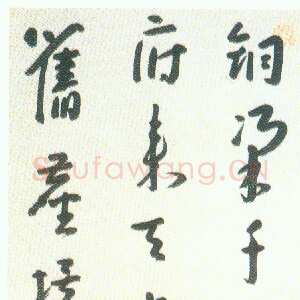 銅梁千
府来天
舊臺
Shufawang.CN